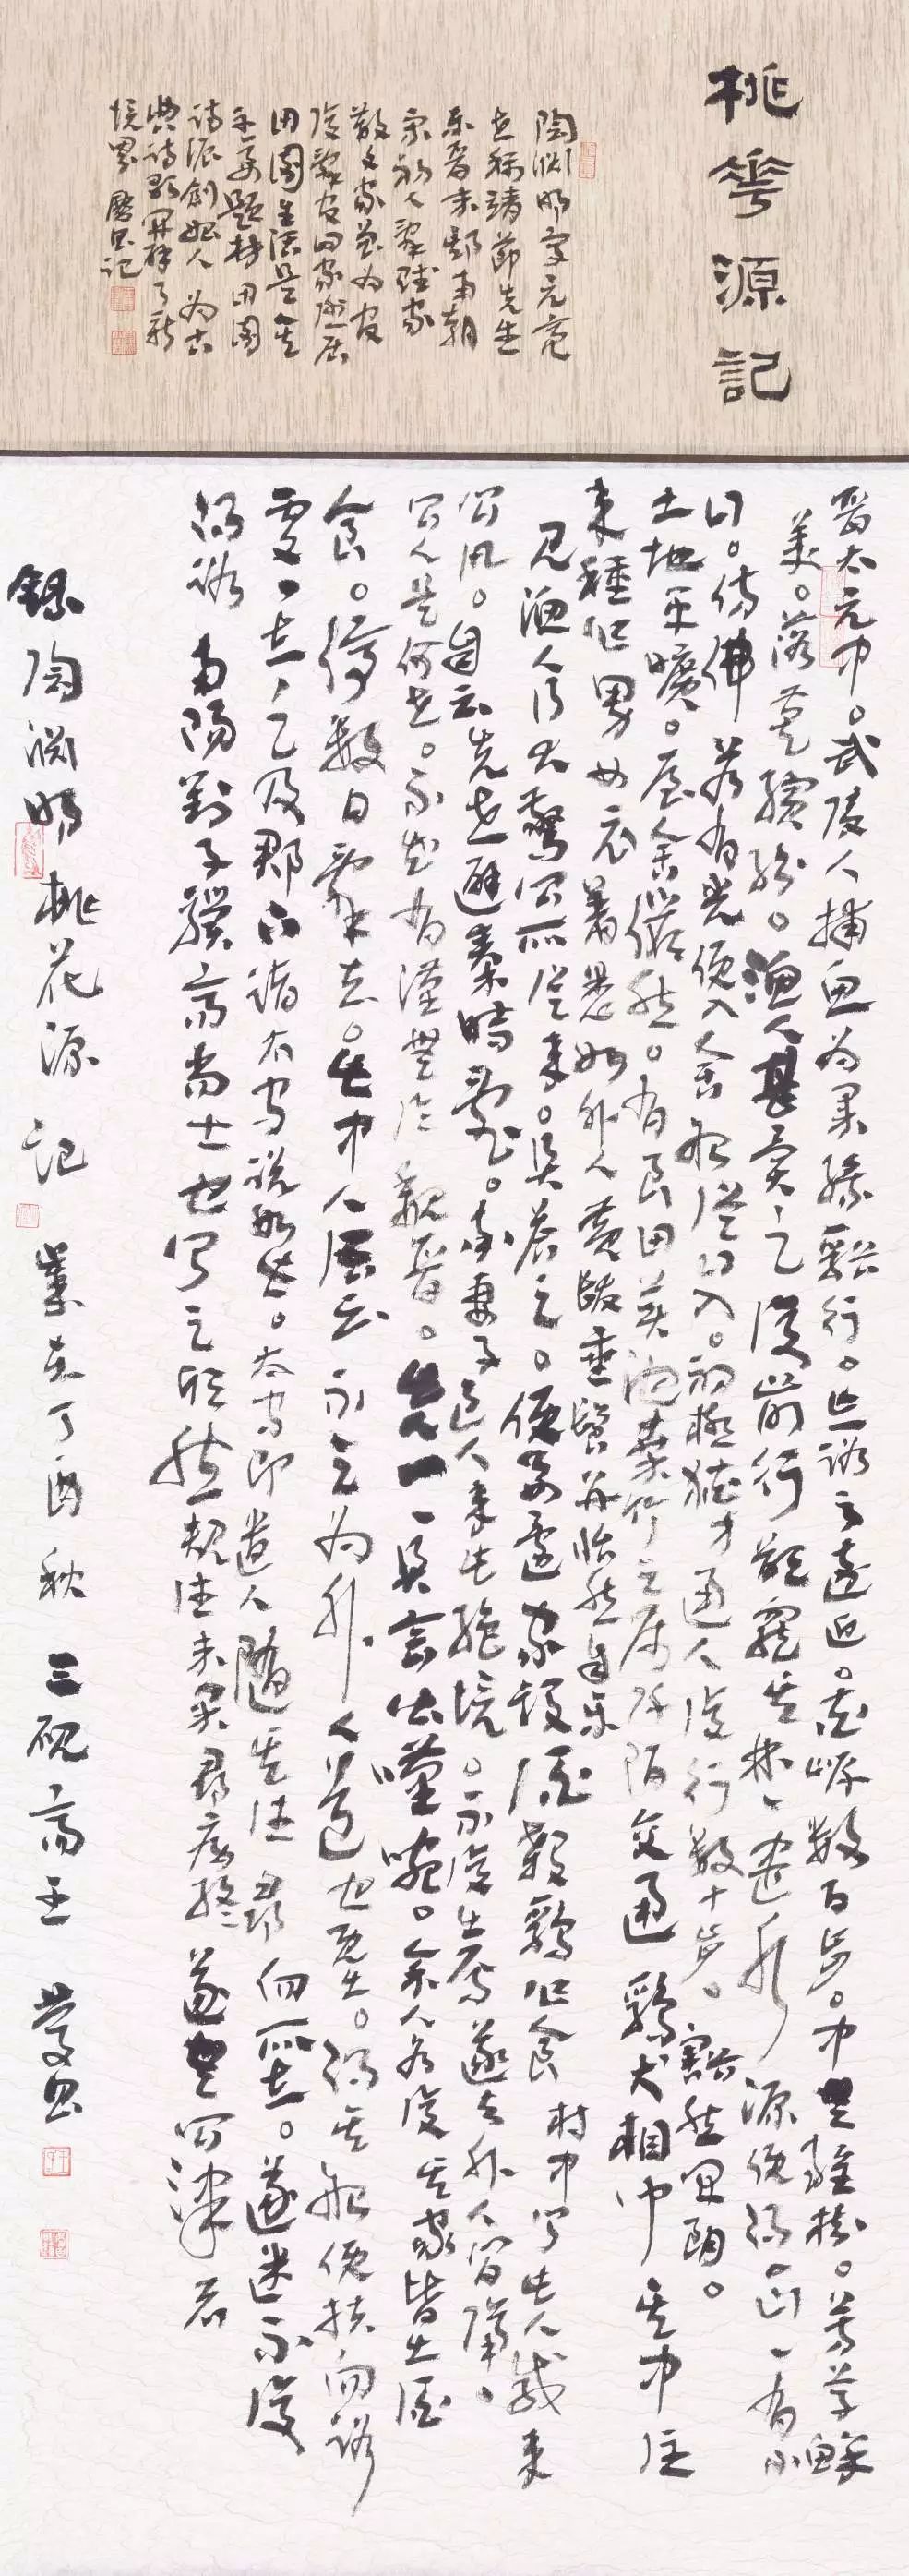 桃花源記
陶渊明字元亮
世称靖节先生
东晋末期南朝
宋初人辞赋家
散文家
田园生活是其
主要题材田园
诗派创始人为古
典诗歌开辟了新
境界
晋太元中。武陵人捕鱼为业缘谿行。忘路之远近。忽逢桃花林夹岸数百步。中无雜樹。芳草鮮
美。落英缤纷。渔人甚异之復前行欲窮其林林盡水源便得一山山有小
口。仿佛若有光便舍船從口入。初極狭才通人復行数十步。豁然開朗。
土地平曠。屋舍儼然。有良田美池桑竹之屬阡陌交通鷄犬相聞其中往
来種作男女衣著悉如外人黄髮垂髫并怡然自乐
見渔人乃大驚問所從来。具答之。便要還家設酒殺鷄作食村中聞此人咸来
問訊。自云先世避秦時乱。率妻子邑人来此絶境。不復出焉遂与外人間隔。
問今是何世。乃不知有漢無論魏晋。此人一一具言所聞皆嘆惋。余人各復延至其家皆出酒
食。停数日辭去。此中人語云不足为外人道也既出。得其船便扶向路
處處志之及郡下詣太守説如此。太守即遣人隨其往尋向所誌。遂迷不復
得路南陽劉子驥高尚士也聞之欣然規往未果尋病終遂無問津者
録陶渊明桃花源記歲在丁酉秋三砚斋主